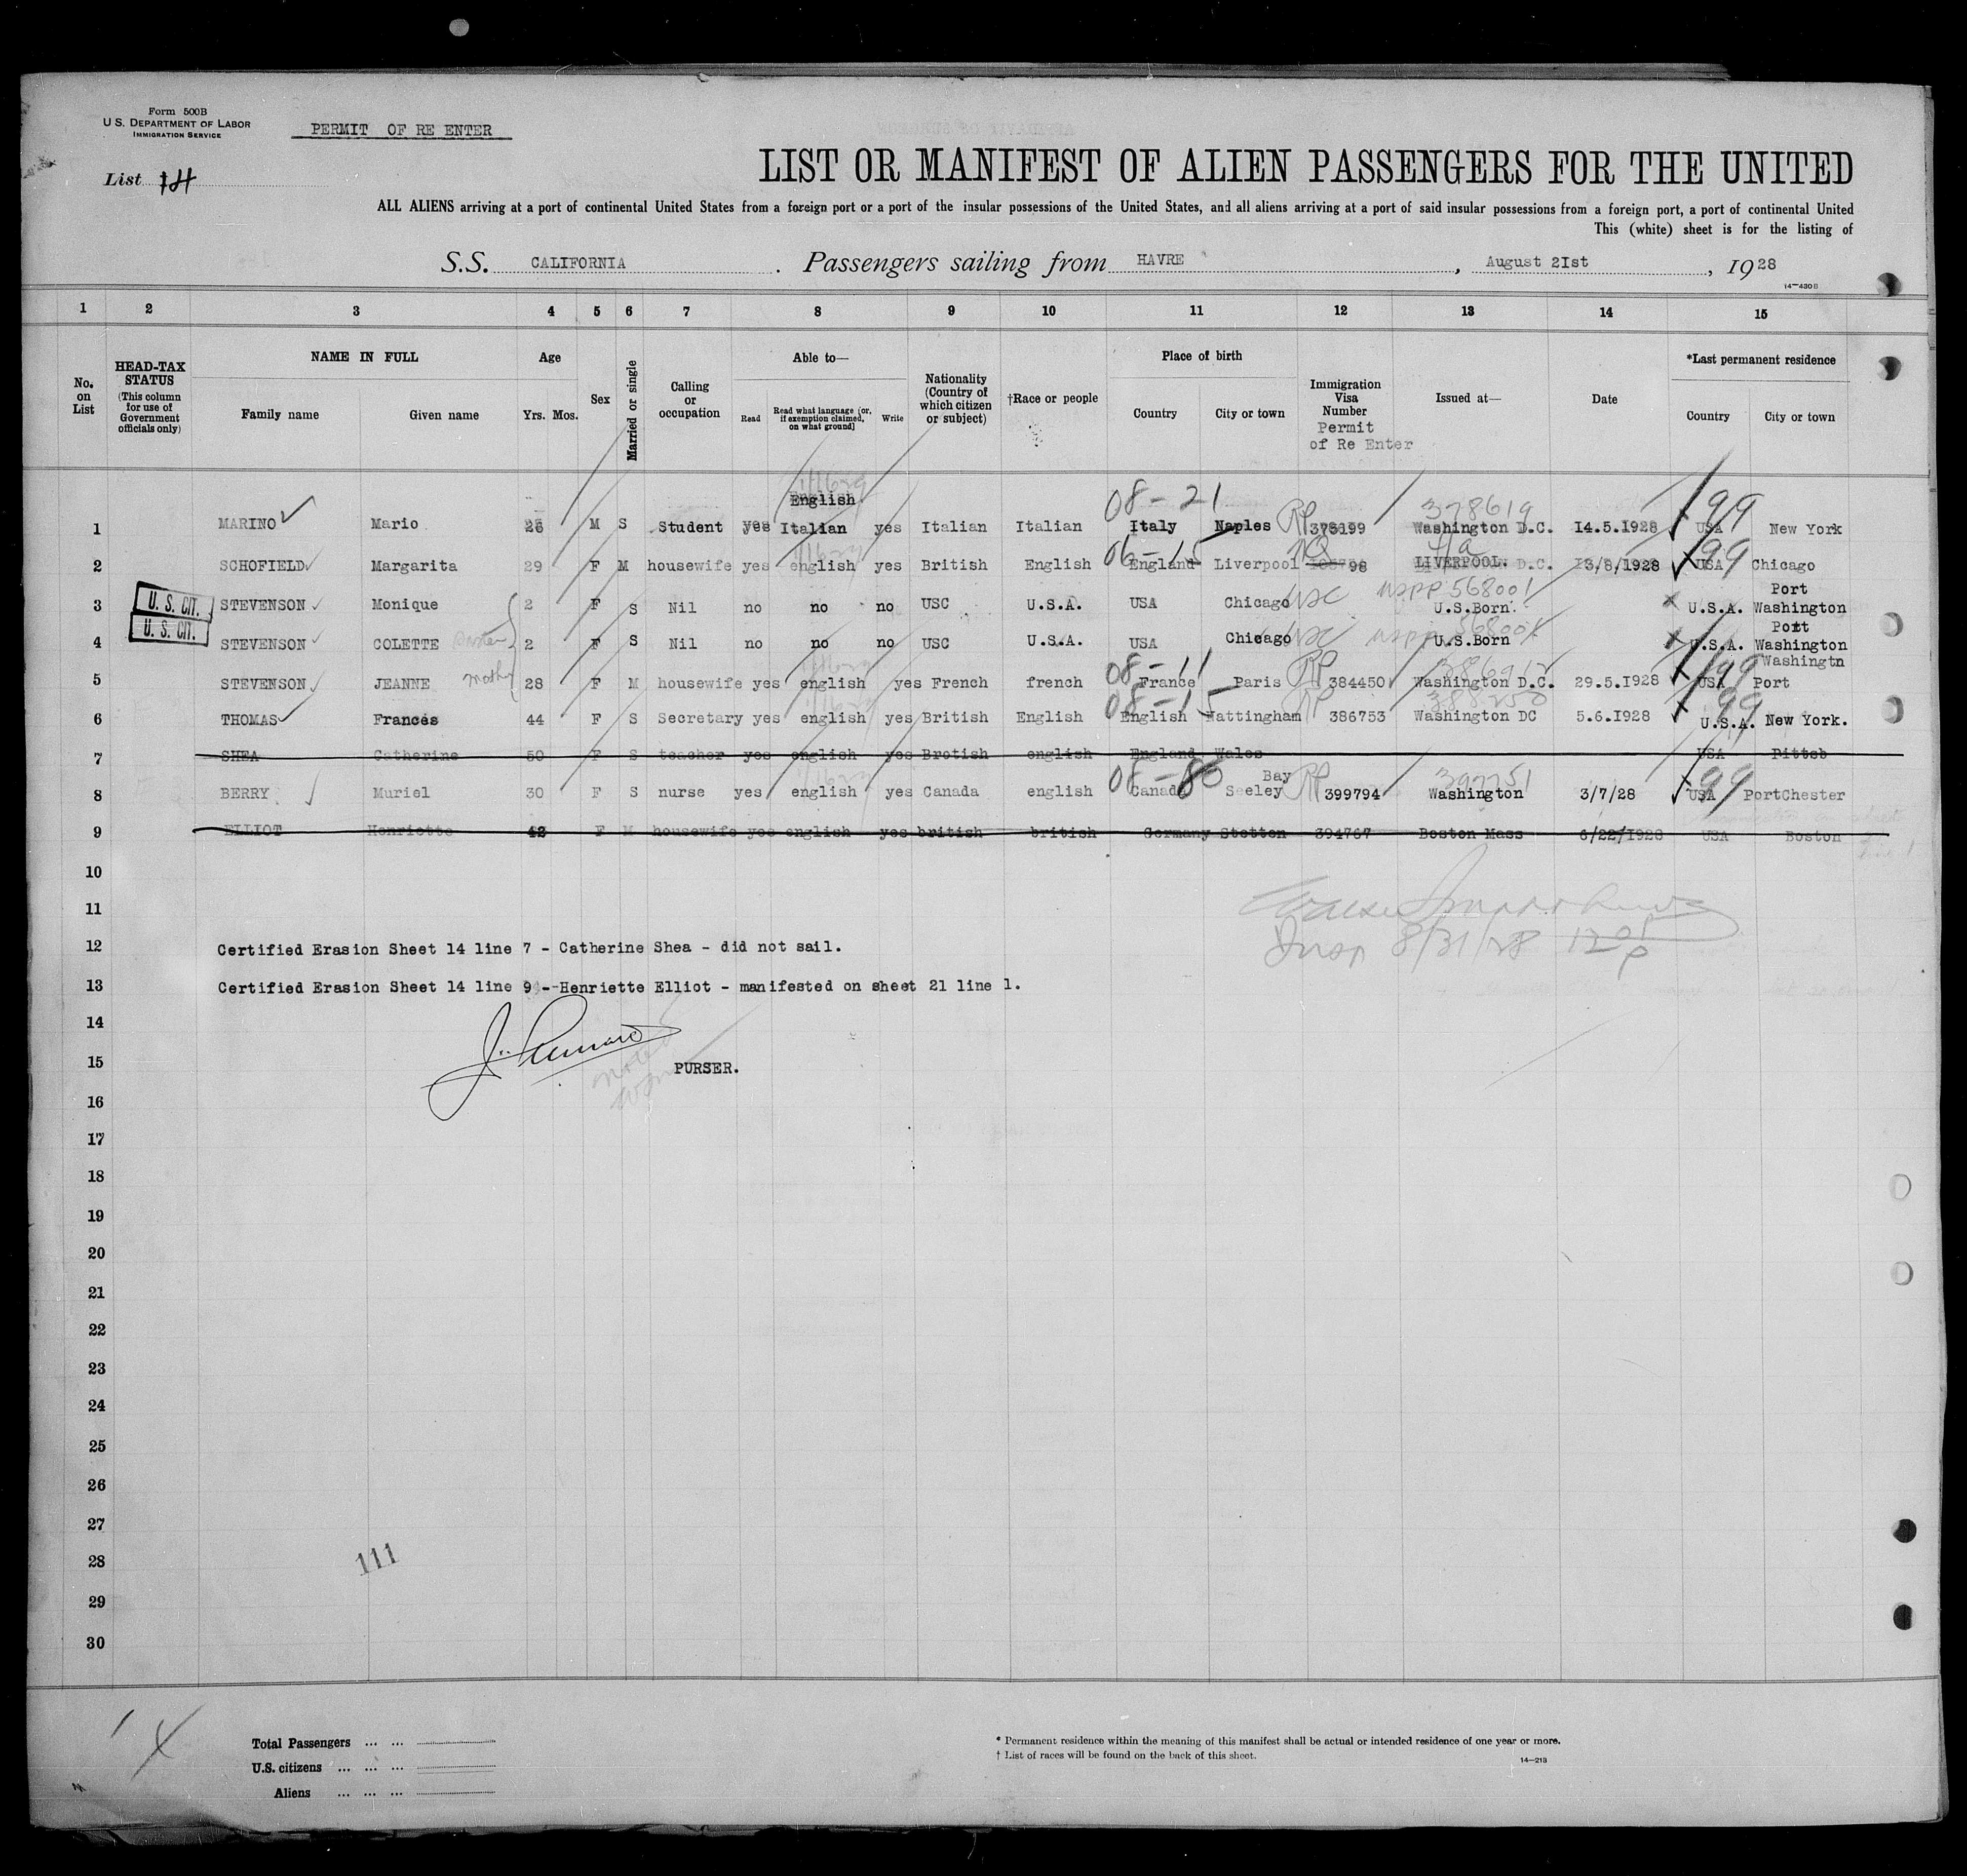 Form 500B
U.S. DEPARTMENT OF LABOR
IMMIGRATION SERVICE
PERMIT OF RE ENTER
List 14
LIST OR MANIFEST OF ALIEN PASSENGERS FOR THE UNITED
ALL ALIENS arriving at a port of continental United States from a foreign port or a port of the insular possessions of the United States, and all aliens arriving at a port of said insular possessions from a foreign port, a port of continental United
This (white) sheet is for the listing of
S.S. CALIFORNIA . Passengers sailing from HAVRE , August 2Ist , 1928
14—430B
1 2 3 4 5 6 7 8 9 10 11 12 13 14 15
No. on List
HEAD-TAX STATUS (This column for use of Government officials only)
NAME IN FULL
Family name Given name
Age
Yrs. Mos.
Sex
Married or single
Calling or occupation
Able to—
Read Read what language (or, if exemption claimed, on what ground) Write
Nationality (Country of which citizen or subject)
†Race or people
Place of birth
Country City or town
Immigration Visa Number Permit of Re Enter
Issued at—
Date
*Last permanent residence
Country City or town
English 08-21 378619 99
1 MARINO Mario M S Student yes Italian yes Italian Italian Italy Naples RP Washington D.C. I4.5.I928 USA New York
06-15 NQ 99
2 SCHOFIELD Margarita 29 F M housewife yes english yes British English England Liverpool 98 LIVERPOOL. D.C. 13/8/1928 USA Chicago
U. S. CIT. Port
3 STEVENSON Monique 2 F S Nil no no no USC U.S.A. USA Chicago USC USPP 568001 U.S.Born. U.S.A. Washington
U. S. CIT. Port
4 STEVENSON COLETTE 2 F S Nil no no no USC U.S.A. USA Chicago USC USPP 568001 U.S.Born U.S.A. Washington
mother 08-11 99 Washingtn
5 STEVENSON JEANNE 28 F M housewife yes english yes French french France Paris RP 384450 Washington D.C. 29.5.I928 USA Port
08-15 RP 388250 99
6 THOMAS Frances 44 F S Secretary yes english yes British English English Nattingham 386753 Washington DC 5.6.I928 U.S.A. New York.
7 SHEA Catherine 50 F S teacher yes english yes Brotish english England Wales USA Pittsb
08-80 Bay RP 392251 99
8 BERRY Muriel 30 F S nurse yes english yes Canada english Canada Seeley 399794 Washington 3/7/28 USA PortChester
9 ELLIOT Henriette 42 F M housewife yes english yes british british Germany Stetton 394767 Boston Mass 6/22/1928 USA Boston
10
11
Insp 8/31/28
12 Certified Erasion Sheet 14 line 7 - Catherine Shea - did not sail.
13 Certified Erasion Sheet 14 line 9 - Henriette Elliot - manifested on sheet 21 line 1.
14
15 PURSER.
16
17
18
19
20
21
22
23
24
25
26
27
28
111
29
30
Total Passengers ... ...
U.S. citizens ... ... ...
Aliens ... ... ...
* Permanent residence within the meaning of this manifest shall be actual or intended residence of one year or more.
† List of races will be found on the back of this sheet.
14—213